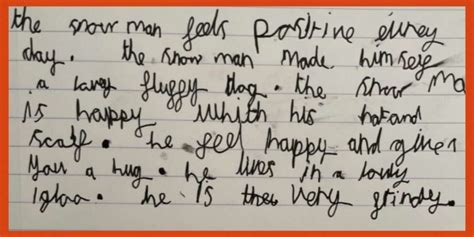 the snow man feels positive evrey
day. the snow man made himself
a large fluffy dog. the snow ma
is happy which his hat and
scarf. he feel happy and gives
you a hug. he lives in a lovly
igloo. he is very